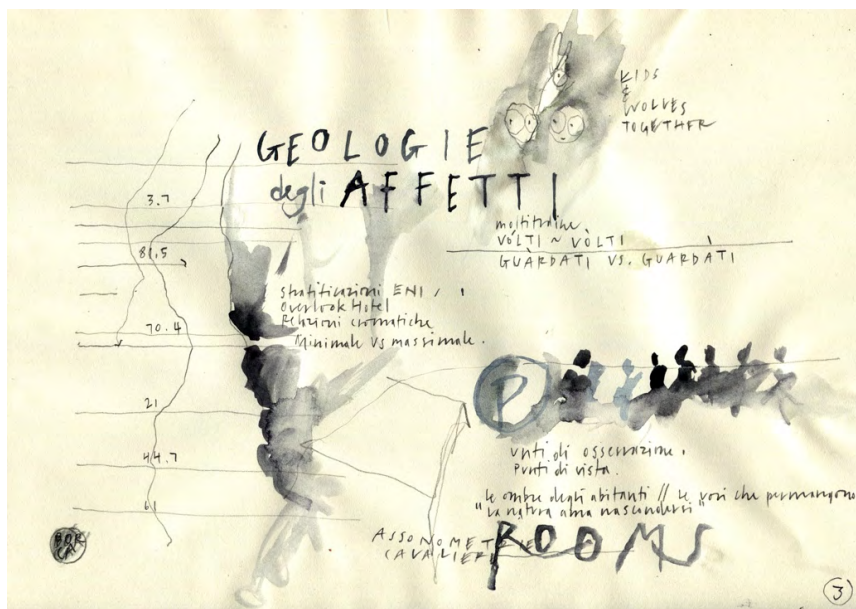 KIDS
&
WOLVES
TOGETHER
GEOLOGIE
degli AFFETTI
moltitudine
VÓLTI ~ VÒLTI
GUÀRDATI VS. GUARDÀTI
3.7
81.5
70.4
21
44.7
61
stratificazioni ENI,
Overlook Hotel
Relazioni cromatiche
Minimale vs massimale.
P
unti di osservazione.
Punti di vista.
le ombre degli abitanti // le voci che permangono
"La natura ama nascondersi"
ASSONOMETRIE
CAVALIERE
ROOMS
BOR
CA
3